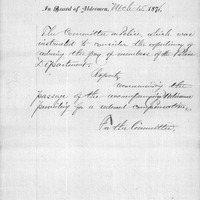 In Board of Aldermen, Mch 15, 1876.
The Committee on Police, which was
instructed to consider the expediency of
reducing the pay of members of the Police
Department,
Report,
recommending the
passage of the accompanying
providing for a reduced compensation.
For the Committee,